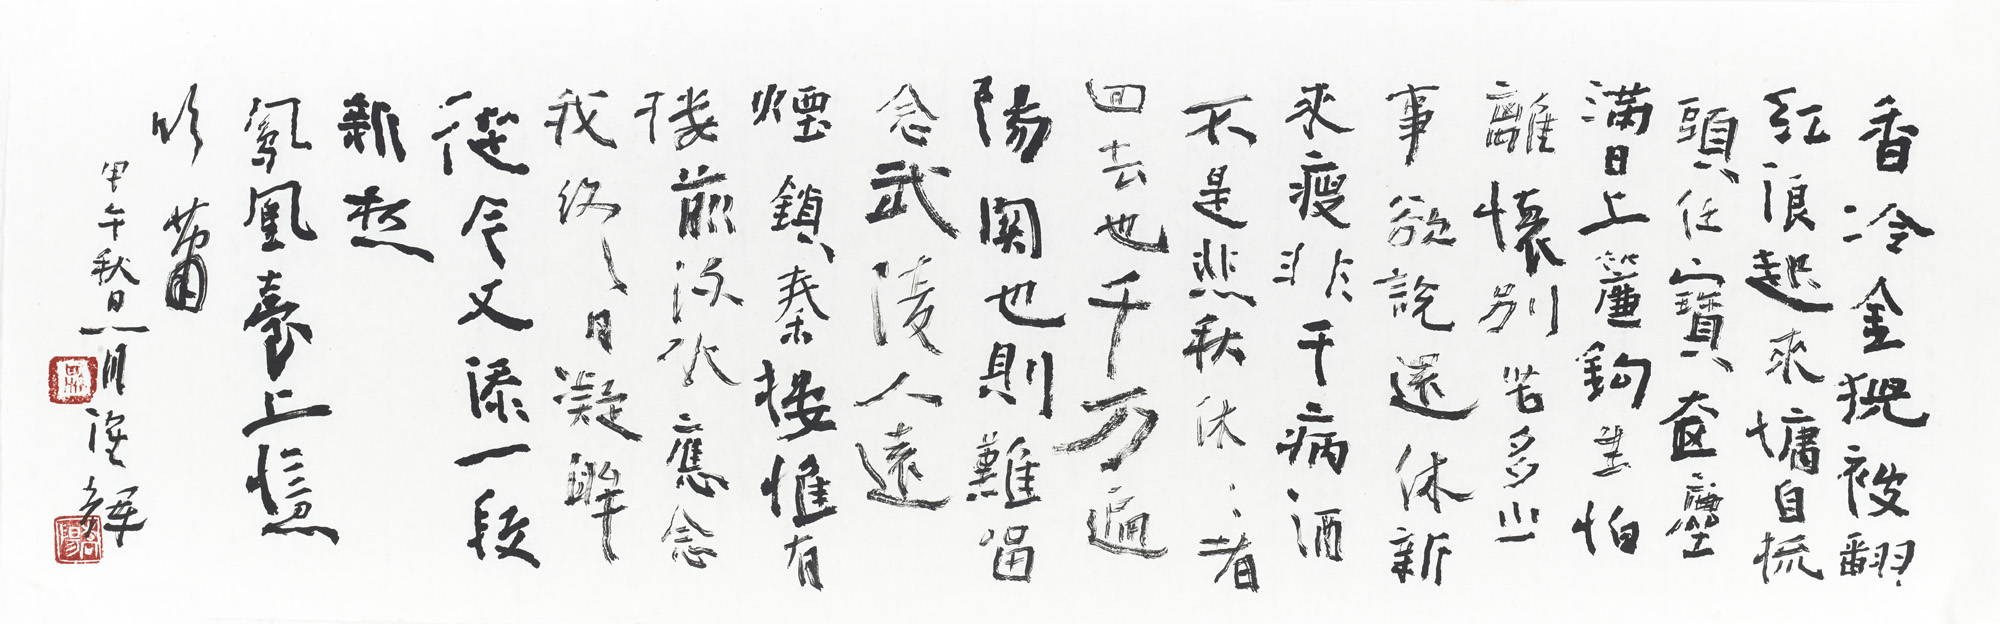 香冷金猊被翻
紅浪起來慵自梳
頭任寶奩塵
滿日上簾鉤生怕
離懷別苦多少
事欲說還休新
來瘦非干病酒
不是悲秋休〻者
回去也千万遍
陽關也則難留
念武陵人遠
煙鎖秦樓惟有
樓前流水應念
我終日凝眸
從今又添一段
新愁
鳳凰臺上憶
吹簫
甲午秋日